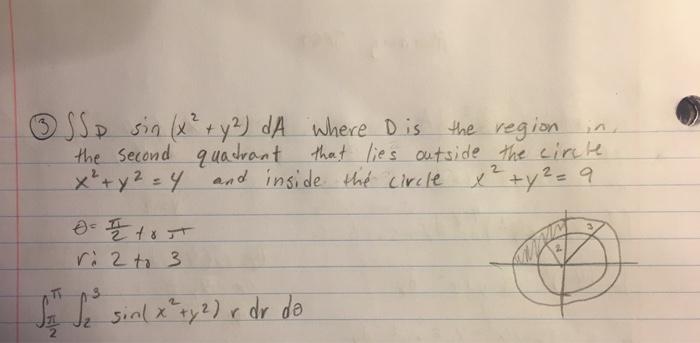 ③ ∫∫D sin (x² + y²) dA where D is the region in
the second quadrant that lies outside the circle
x² + y² = 4 and inside the circle x² + y² = 9
θ = π/2 to π
r: 2 to 3
∫π/2^π ∫2^3 sin(x² + y²) r dr dθ
2 3